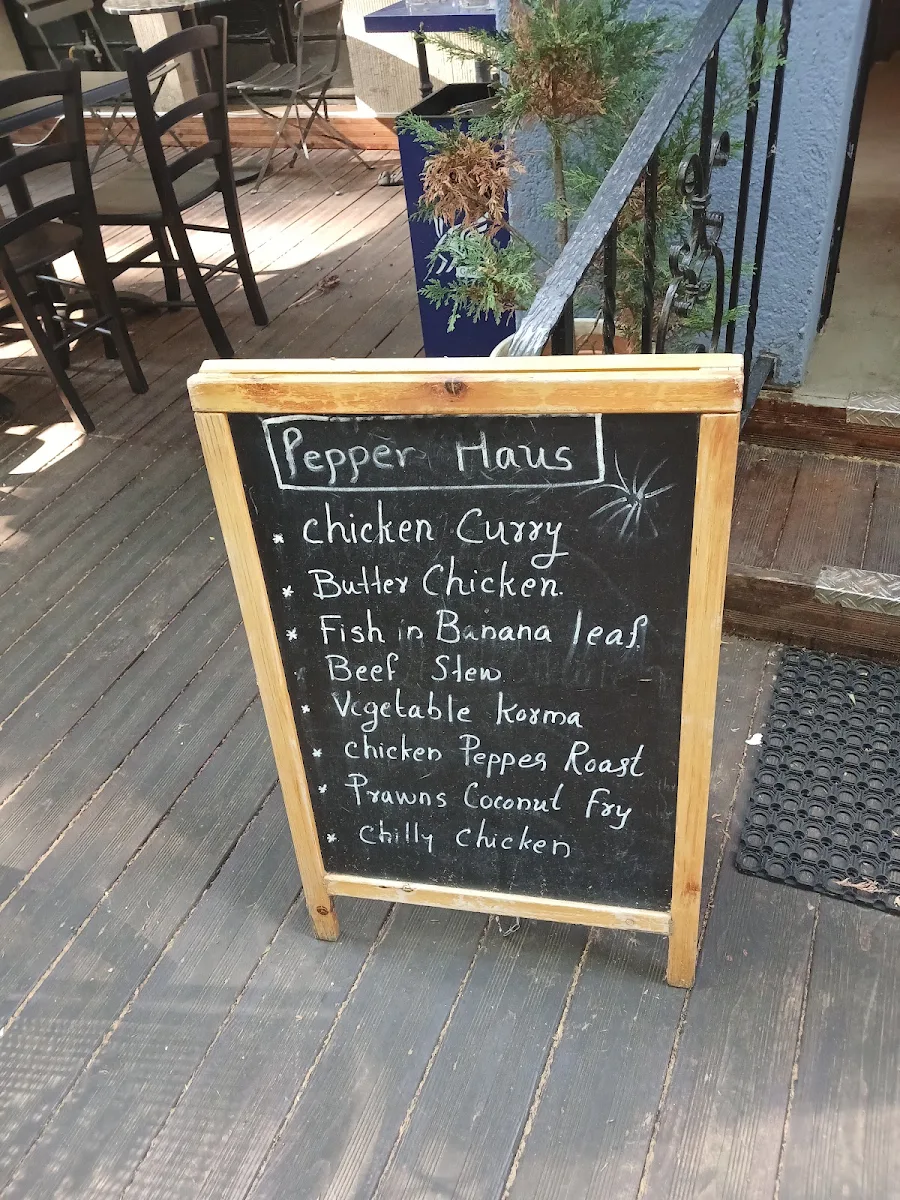 Pepper Haus
* chicken Curry
* Butter Chicken.
* Fish in Banana leaf.
Beef Stew
* Vegetable korma
* chicken Pepper Roast
* Prawns Coconut fry
* chilly chicken